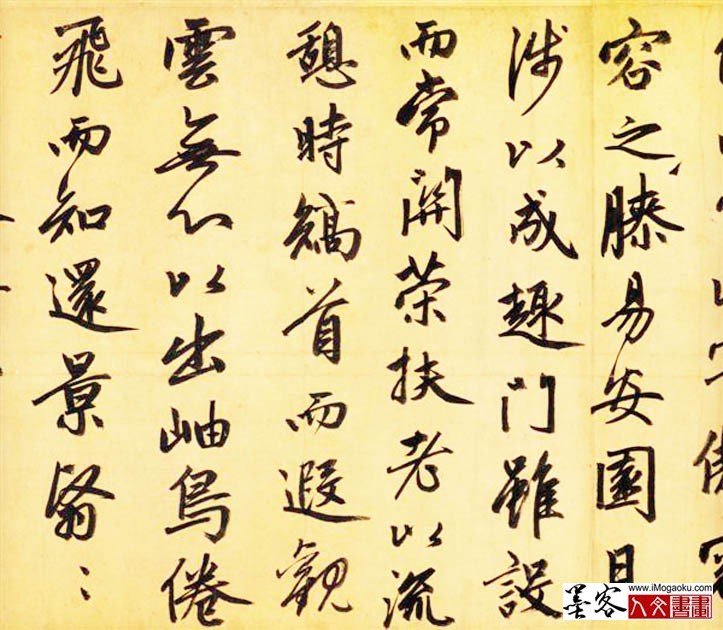 容之膝易安園日
涉以成趣門雖設
而常關策扶老以流
憩時矯首而遐觀
雲無心以出岫鳥倦
飛而知還景翳〻
墨客
www.iMogaoku.com
人文書畫